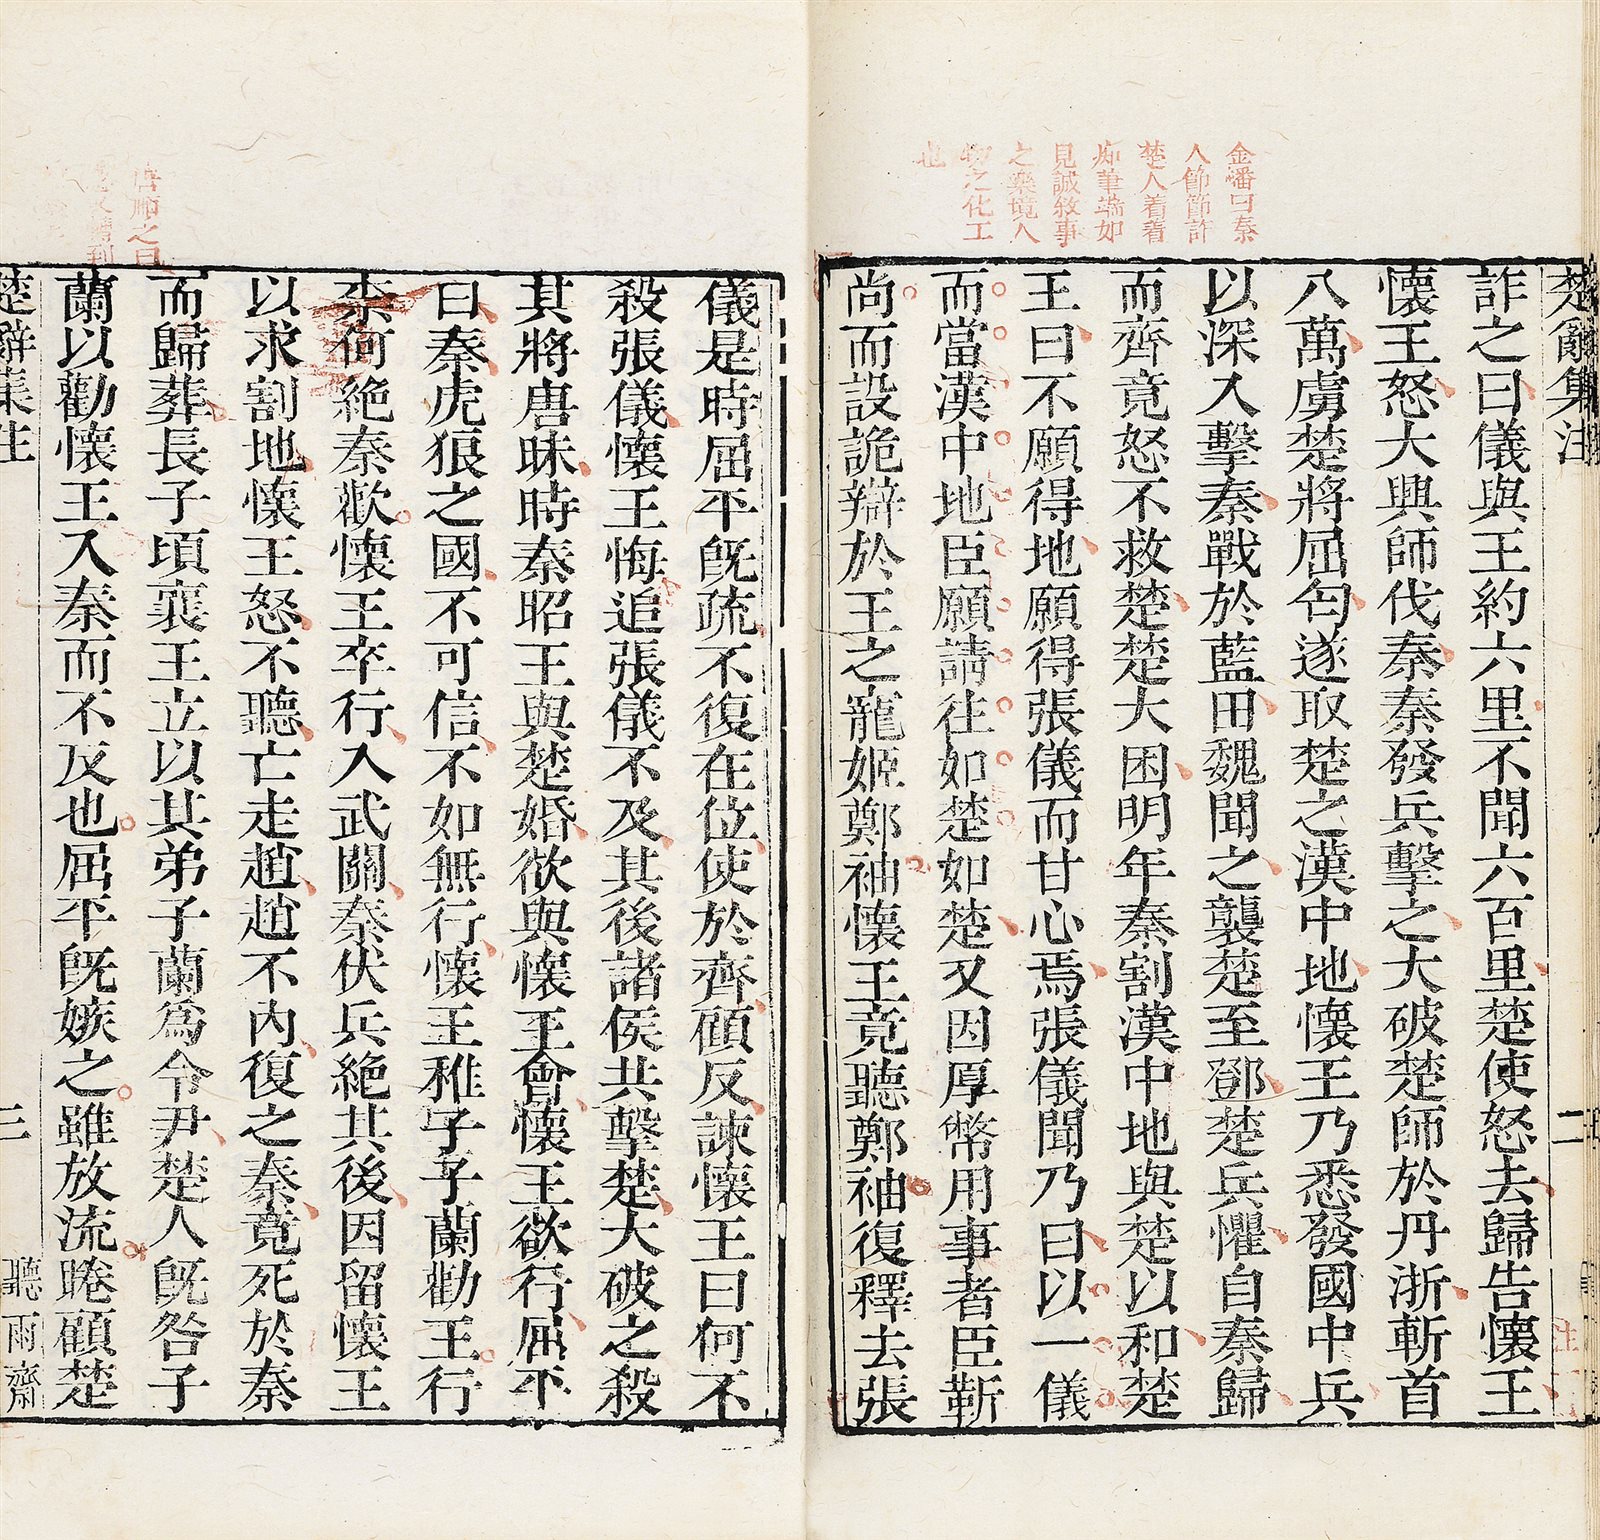 楚辭集注
二
金蟠曰秦
人節節詐
楚人着着
痴筆端如
見誠敘事
之藥境人
物之化工
也
詐之曰儀與王約六里不聞六百里楚使怒去歸告懷王
懷王怒大興師伐秦秦發兵擊之大破楚師於丹淅斬首
八萬虜楚將屈匄遂取楚之漢中地懷王乃悉發國中兵
以深入擊秦戰於藍田魏聞之襲楚至鄧楚兵懼自秦歸
而齊竟怒不救楚楚大困明年秦割漢中地與楚以和楚
王曰不願得地願得張儀而甘心焉張儀聞乃曰以一儀
而當漢中地臣願請往如楚如楚又因厚幣用事者臣靳
尚而設詭辯於王之寵姬鄭袖懷王竟聽鄭袖復釋去張
唐順之曰
儀是時屈平旣疏不復在位使於齊顧反諫懷王曰何不
殺張儀懷王悔追張儀不及其後諸侯共擊楚大破之殺
其將唐昧時秦昭王與楚婚欲與懷王會懷王欲行屈平
曰秦虎狼之國不可信不如無行懷王稚子子蘭勸王行
柰何絶秦歡懷王卒行入武關秦伏兵絶其後因留懷王
以求割地懷王怒不聽亡走趙趙不內復之秦竟死於秦
而歸葬長子頃襄王立以其弟子蘭爲令尹楚人旣咎子
蘭以勸懷王入秦而不反也屈平旣嫉之雖放流睠顧楚
楚辭集注
三
聽雨齋